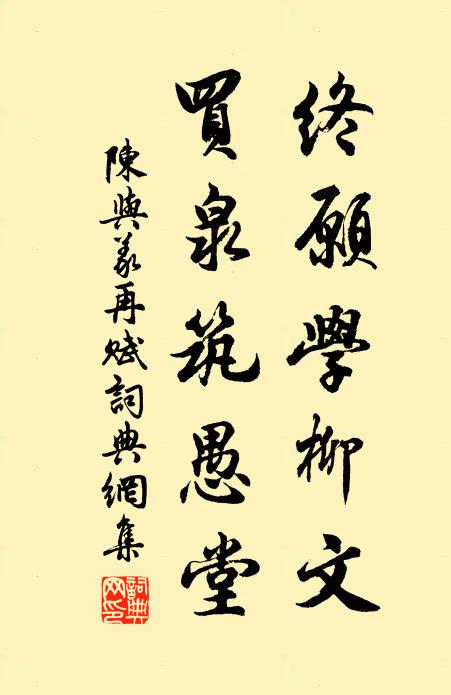 終願學柳文
買泉筑愚堂
陳與義再賦詞典網集
詞典网印